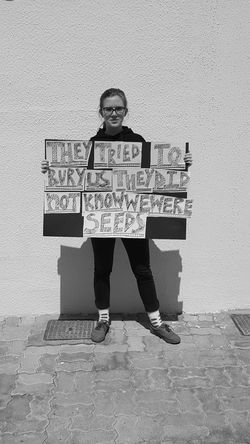 THEY TRIED TO
BURY US THEY DID
NOT KNOW WE WERE
SEEDS